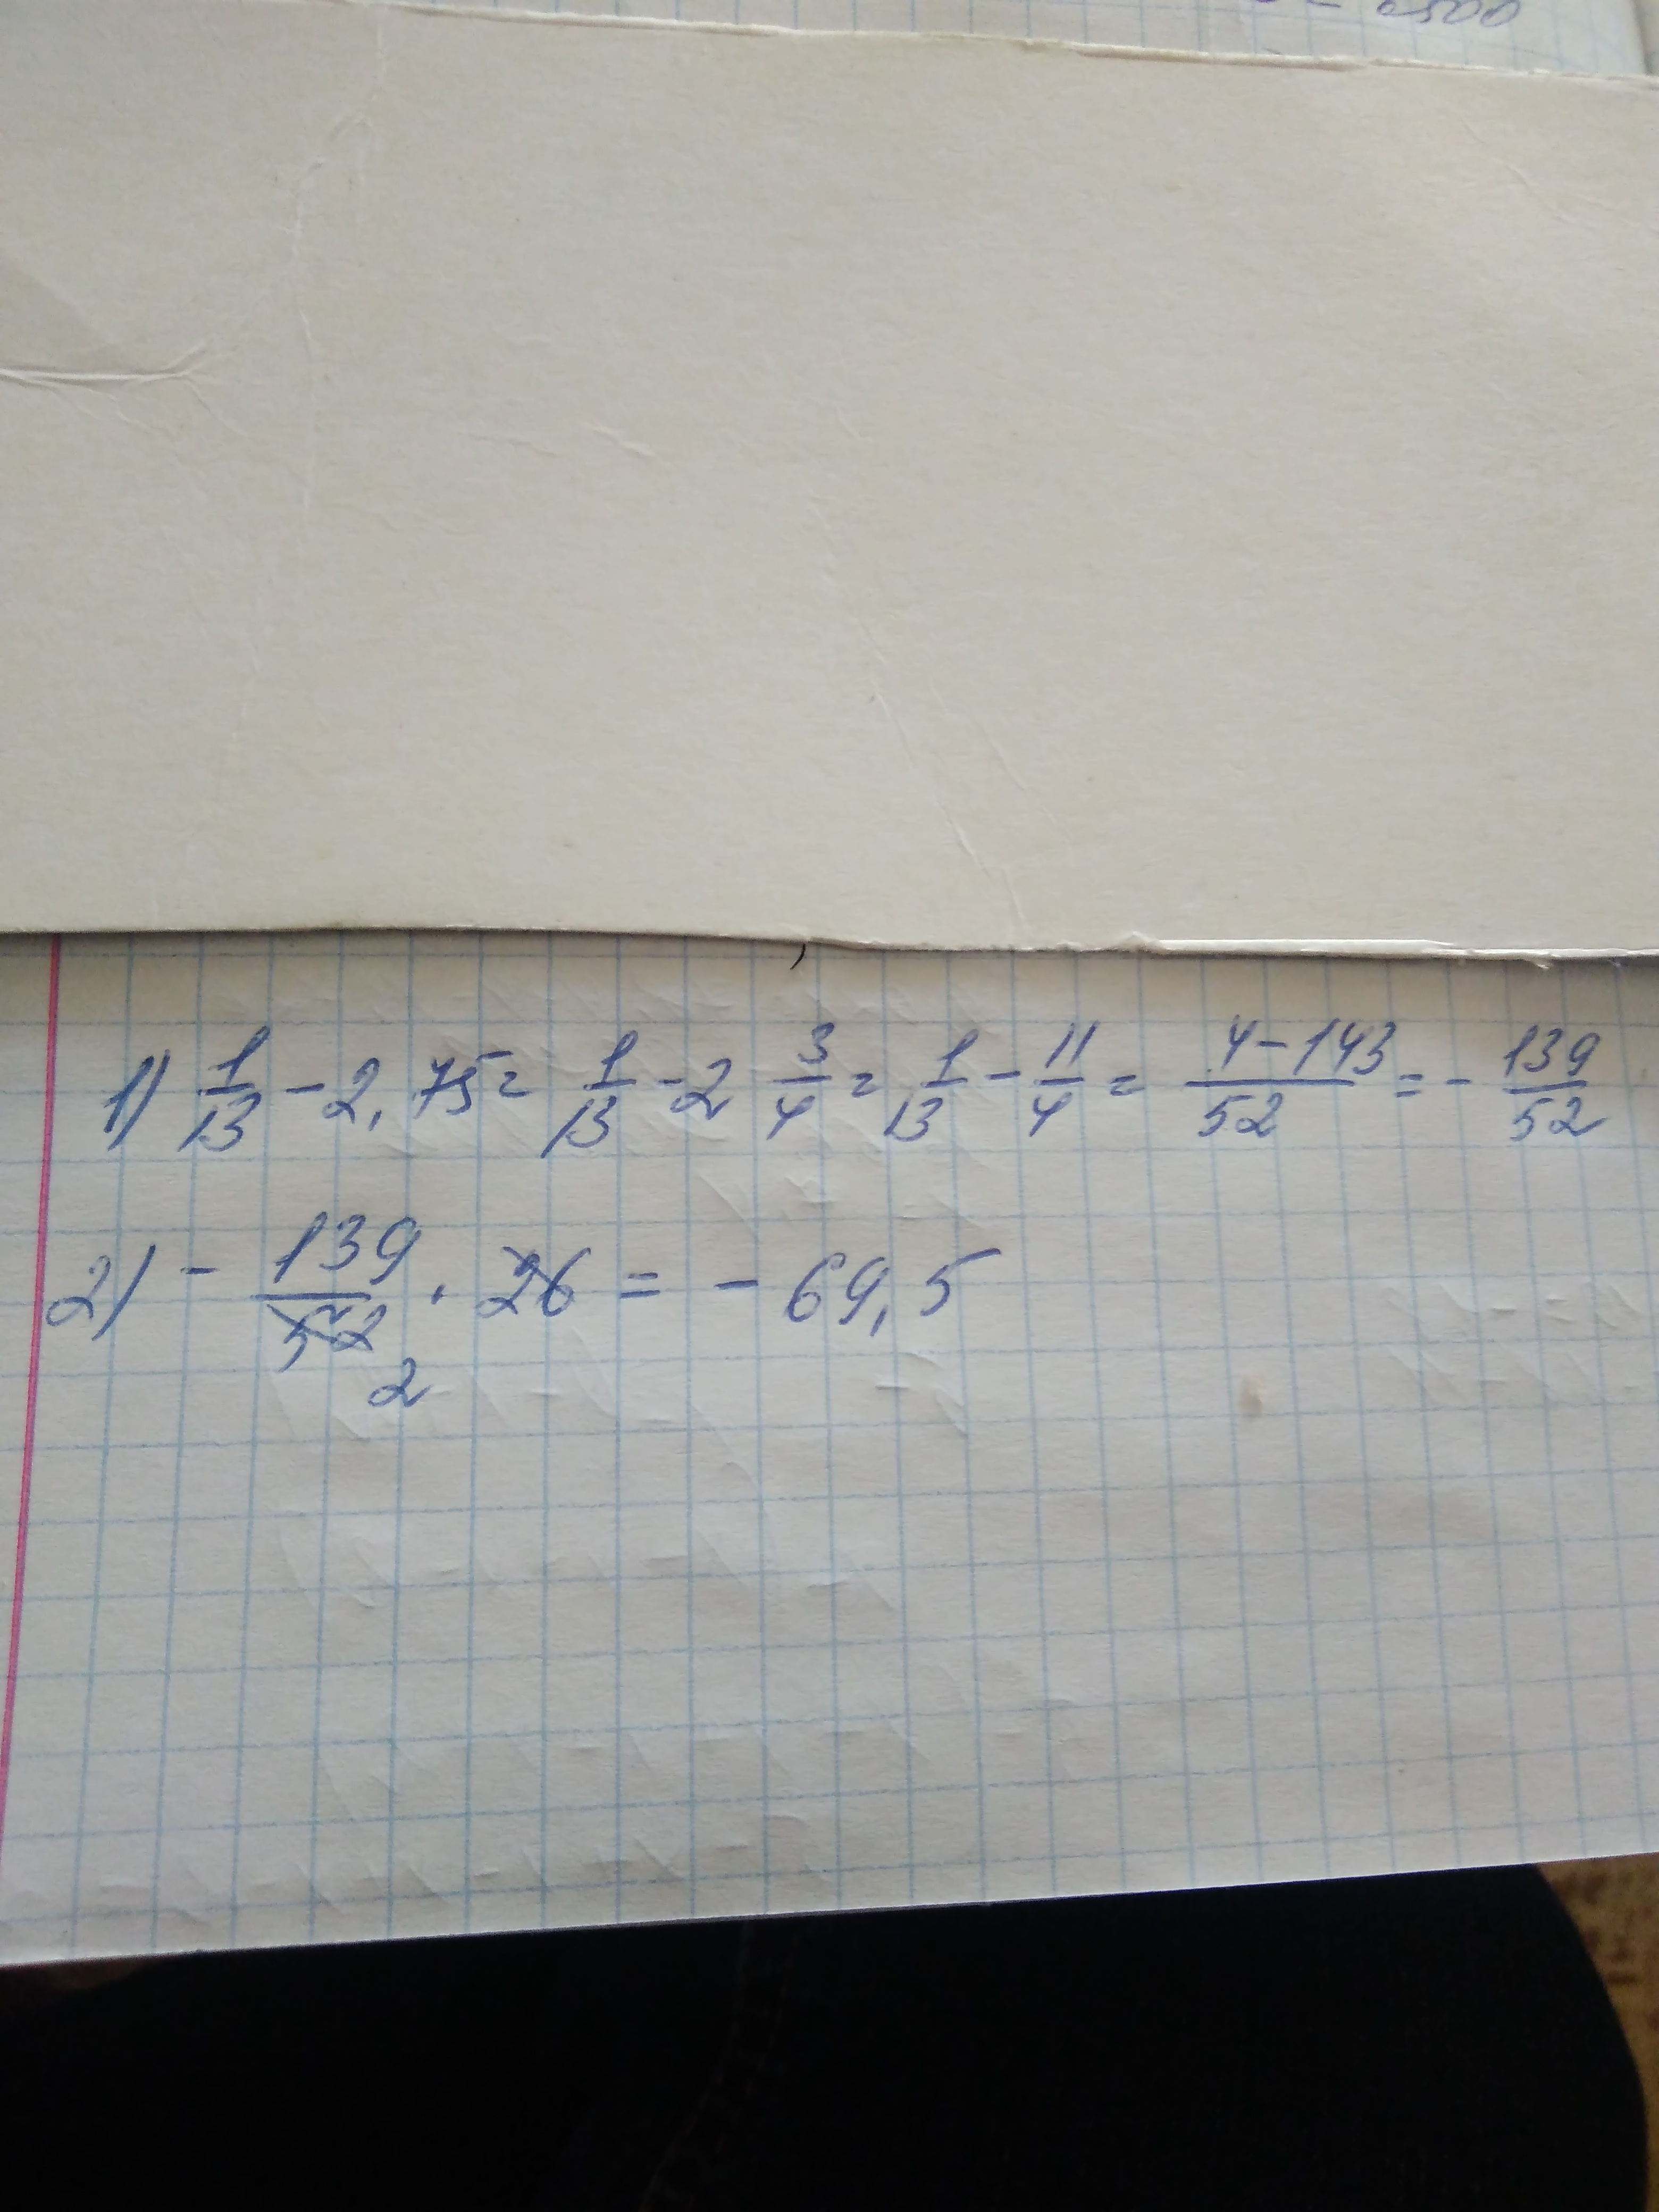 1) 1/13 - 2,75 = 1/13 - 2 3/4 = 1/13 - 11/4 = 4-143/52 = - 139/52
2) - 139/52 · 26 = - 69,5
2